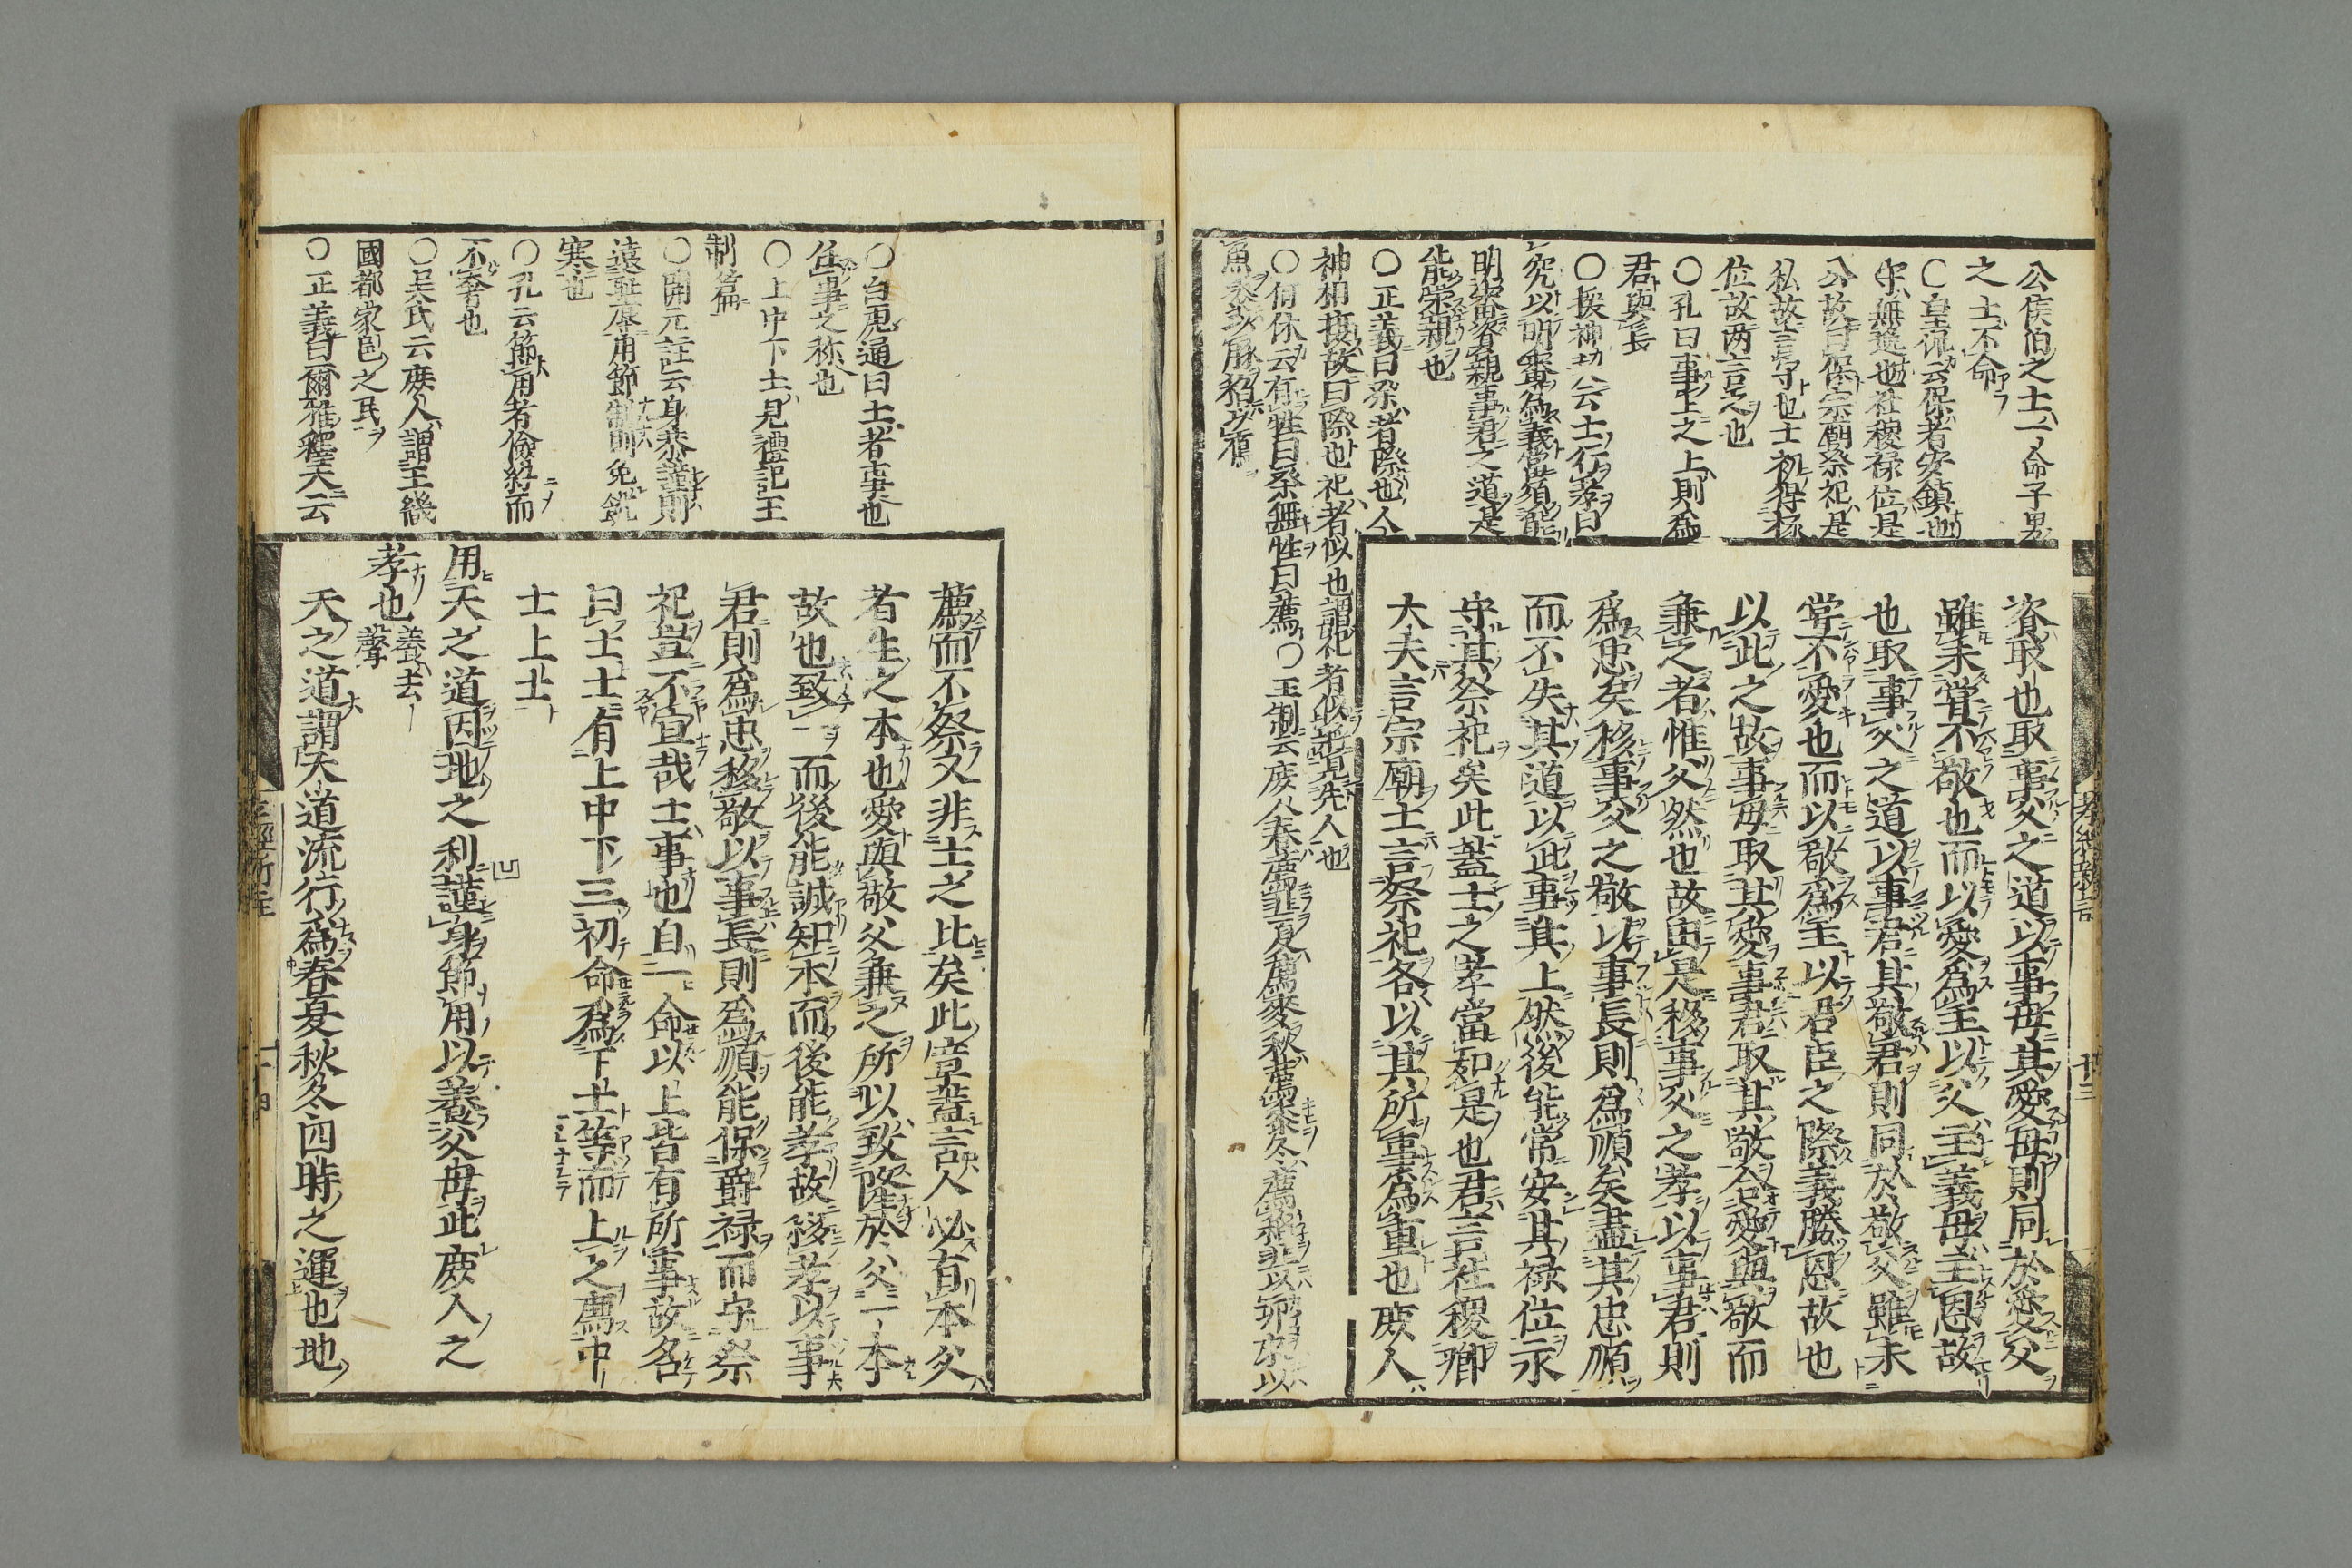 公侯伯之士一命子男
之士不命
〇皇侃云保者安鎮也
守無逸也社稷禄位是
公故曰保宗廟祭祀是
私故言守也士初得禄
位故両言之也
〇孔曰事上之上則為
君與長
〇援神契公云士行孝曰
究以明審為義當須能
明審資親事君之道是
能榮親也
〇正義曰祭者際也人
神相接故曰際也祀者似也謂祀者似將見先人也
〇何休云有牲曰祭無牲曰薦〇王制云庶人春薦韭夏薦麥秋薦黍冬薦稻韭以卵麥以
魚黍以豚稻以鴈
資取也取事父之道以事母其愛母則同於愛父
雖未嘗不敬也而以愛為主以父主義母主恩故
也取事父之道以事君其敬君則同於敬父雖未
嘗不愛也而以敬為主以君臣之際義勝恩故也
以此之故事母取其愛事君取其敬合愛與敬而
兼之者惟父然也故由是移事父之孝以事君則
為忠矣移事父之敬以事長則為順矣盡其忠順
而不失其道以此事其上然後能常安其禄位永
守其祭祀矣此蓋士之孝當如是也君言社稷卿
大夫言宗廟士言祭祀各以其所事為重也庶人
薦而不祭又非士之比矣此章蓋言人必有本父
者生之本也愛與敬父兼之所以致隆於父一本
故也致一而後能誠知本而後能孝故移孝以事
君則為忠移敬以事長則為順能保爵禄而守祭
祀豈不宜哉士事也自一命以上皆有所事故名
曰士士有上中下三初命為下士等而上之為中
士上士
用天之道因地之利謹身節用以養父母此庶人之
孝也 養去聲
天之道謂天道流行為春夏秋冬四時之運也地
〇白虎通曰士者事也
任事之称也
〇上中下士見禮記王
制篇
〇開元註云身恭謹則
遠耻辱用節制則免飢
寒也
〇孔云節用者儉約而
不奢也
〇吴氏云庶人謂王畿
國都家邑之民
〇正義曰爾雅釋天云